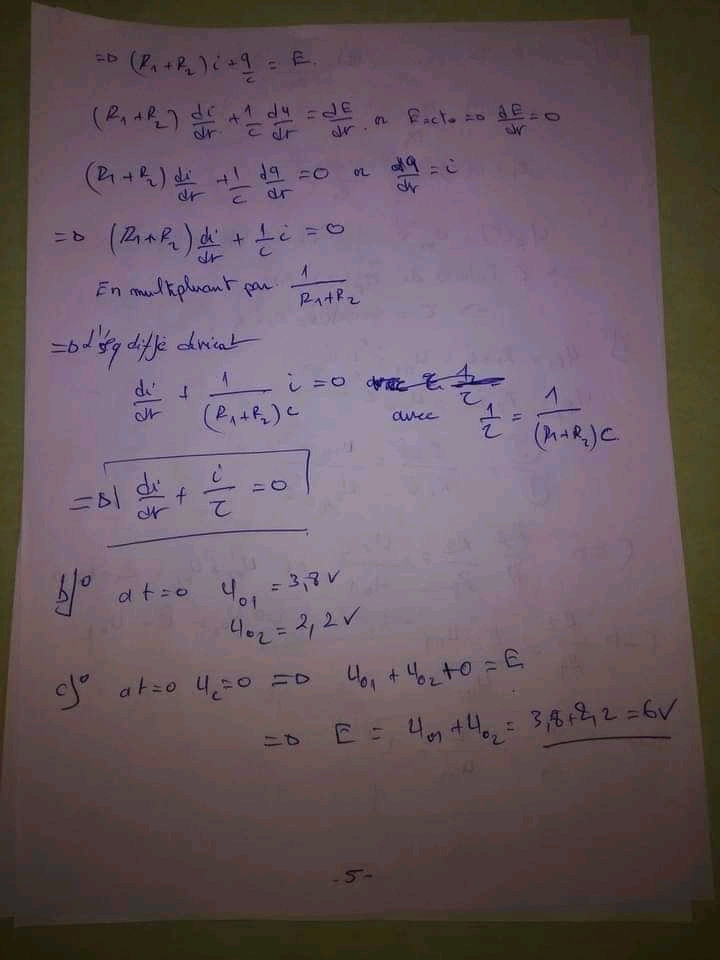 ⇒ (R₁+R₂) i + q/c = E.
(R₁+R₂) di/dt + 1/c dq/dt = dE/dt. or E=cte ⇒ dE/dt = 0
(R₁+R₂) di/dt + 1/c dq/dt = 0 or dq/dt = i
⇒ (R₁+R₂) di/dt + 1/c i = 0
En multipliant par 1/(R₁+R₂)
⇒ l'éq diffé devient
di/dt + 1/((R₁+R₂)c) i = 0 avec 1/τ = 1/((R₁+R₂)C.
⇒ di/dt + i/τ = 0
b)° at=0 U₀₁ = 3,8V
U₀₂ = 2,2V
c)° at=0 U꜀=0 ⇒ U₀₁ + U₀₂ + 0 = E
⇒ E = U₀₁ + U₀₂ = 3,8+2,2 = 6V
-5-